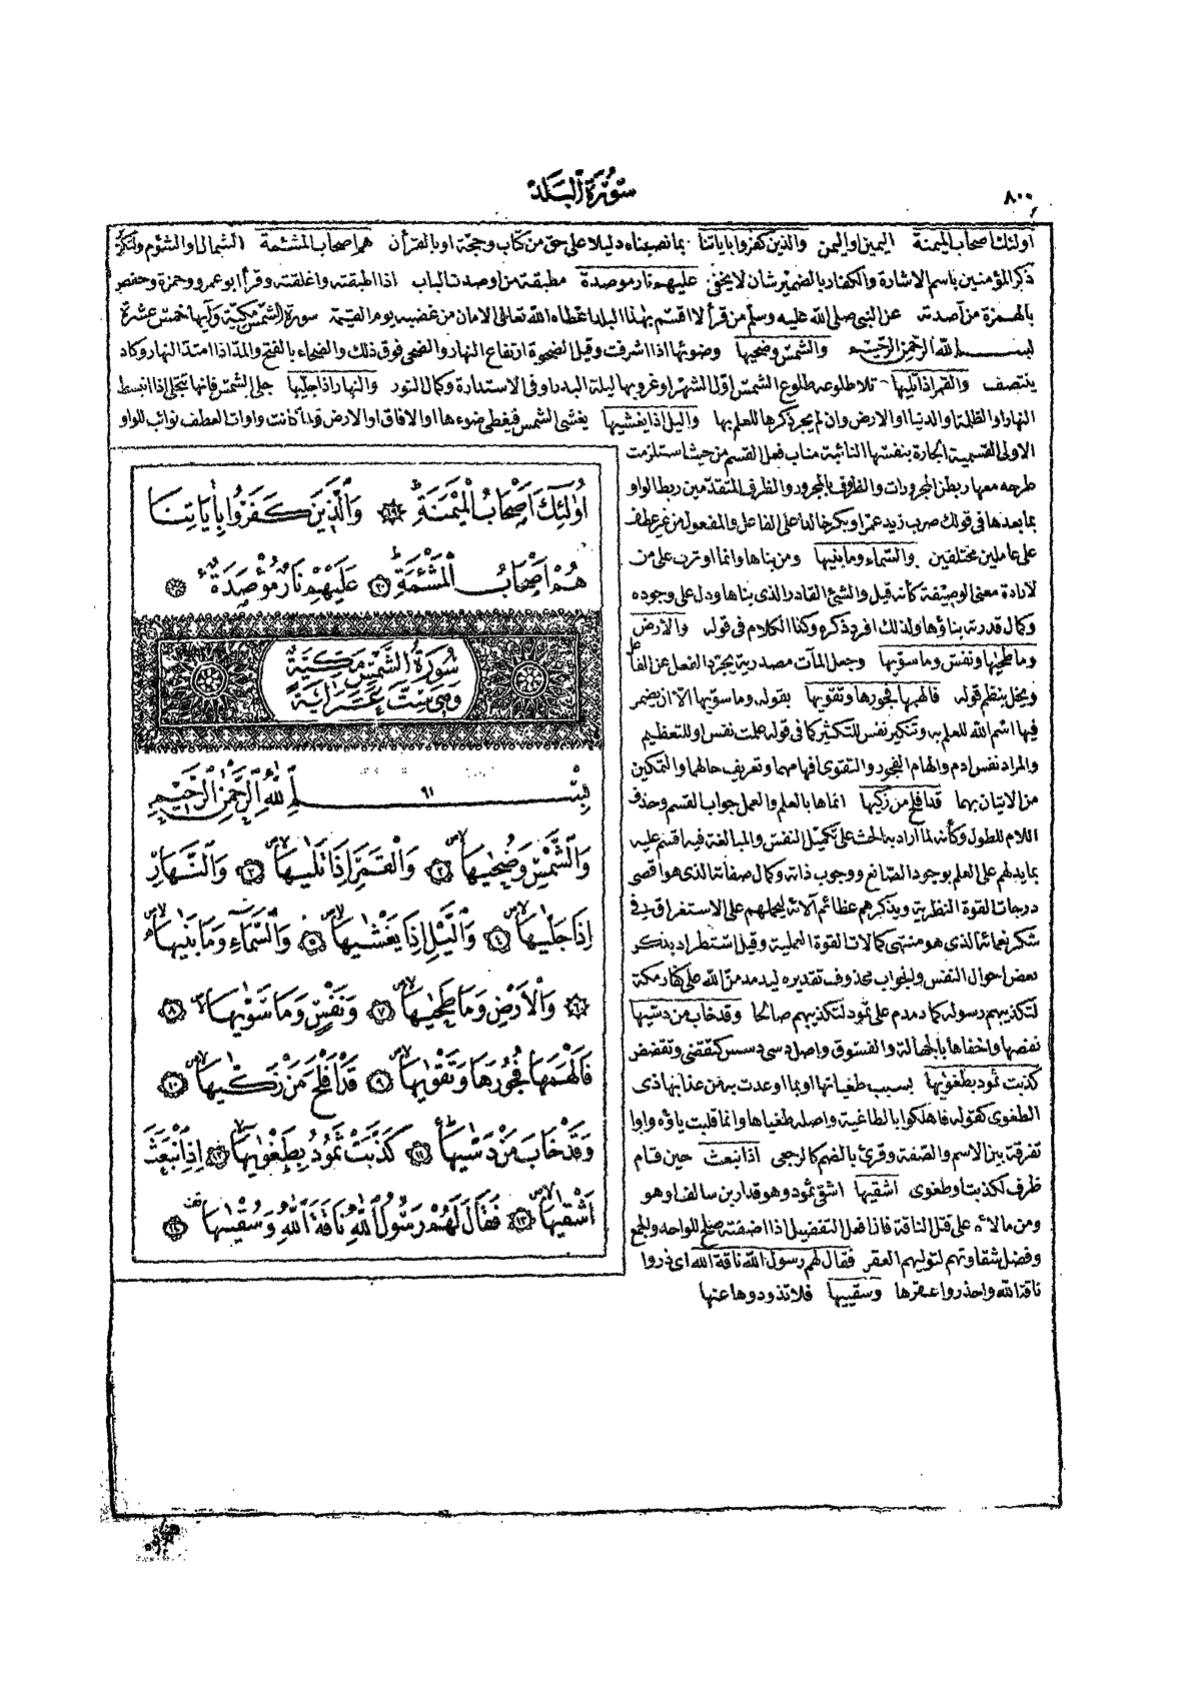 ٨٠٠
سورة البلد
اولئك اصحاب الميمنة اليمين او اليمن والذين كفروا باياتنا بما نصبناه دليلا على حق من كتاب وحجة او بالقرآن هم اصحاب المشئمة الشمال او الشؤم ولتكرّر
ذكر المؤمنين باسم الاشارة والكفار بالضمير شان لا يخفى عليهم نار موصدة مطبقة من اوصدت الباب اذا اطبقته واغلقته وقرأ ابو عمرو وحمزة وحفص
بالهمزة من آصدته عن النبي صلى الله عليه وسلم من قرأ لا اقسم بهذا البلد اعطاه الله تعالى الامان من غضبه يوم القيمة سورة الشمس مكية وآيها خمس عشرة
بسم الله الرحمن الرحيم والشمس وضحيها وضوئها اذا اشرقت وقيل الضحوة ارتفاع النهار والضحى فوق ذلك والضحاء بالفتح والمد اذا امتد النهار وكاد
ينتصف والقمر اذا تليها تلا طلوعه طلوع الشمس اول الشهر او غروبها ليلة البدر او في الاستدارة وكمال النور والنهار اذا جليها جلى الشمس فانها تتجلى اذا انبسط
النهار او الظلمة او الدنيا او الارض وان لم يجر ذكرها للعلم بها والليل اذا يغشيها يغشى الشمس فيغطى ضوءها او الافاق او الارض ولما كانت واوات العطف نوائب للواو
الاولى القسمية الجارة بنفسها النائبة مناب فعل القسم من حيث استلزمت
طرحه معها ربطن المجرورات والظروف بالمجرور والظرف المتقدمين ربط الواو
بما بعدها في قولك ضرب زيد عمرا وبكر خالدا على الفاعل والمفعول من غير عطف
على عاملين مختلفين والسماء وما بنيها ومن بناها وانما اوثرت على من
لارادة معنى الوصفية كأنه قيل والشئ القادر الذى بناها ودل على وجوده
وكمال قدرته بناؤها ولذلك افرد ذكره وكذا الكلام في قوله والارض
وما طحيها ونفس وما سويها وجعل الماآت مصدرية يجرد الفعل عن الفاعل
ويخل بنظم قوله فالهمها فجورها وتقويها بقوله وما سويها الا ان يضمر
فيها اسم الله للعلم به وتنكير نفس للتكثير كما في قوله علمت نفس او للتعظيم
والمراد نفس ادم والهام الفجور والتقوى افهامهما وتعريف حالهما والتمكين
من الاتيان بهما قد افلح من زكيها انماها بالعلم والعمل جواب القسم وحذف
اللام للطول وكأنه لما اراد به الحث على تكميل النفس والمبالغة فيه اقسم عليه
بما يدلهم على العلم بوجود الصانع ووجوب ذاته وكمال صفاته الذى هو اقصى
درجات القوة النظرية ويذكرهم عظائم آلائه ليحملهم على الاستغراق في
شكر نعمائه الذى هو منتهى كمالات القوة العملية وقيل استطراد بذكر
بعض احوال النفس والجواب محذوف تقديره ليدمدمن الله على كفار مكة
لتكذيبهم رسوله كما دمدم على ثمود لتكذيبهم صالحا وقد خاب من دسيها
نقصها واخفاها بالجهالة والفسوق واصل دسى دسس كتقضى وتقضض
كذبت ثمود بطغويها بسبب طغيانها او بما اوعدت به من عذابها ذى
الطغوى كقوله فاهلكوا بالطاغية واصله طغياها وانما قلبت ياؤه واوا
تفرقة بين الاسم والصفة وقرئ بالضم كالرجعى اذ انبعث حين قام
ظرف لكذبت او طغوى اشقيها اشقى ثمود وهو قدار بن سالف او هو
ومن مالأه على قتل الناقة فان افعل التفضيل اذا اضفته صلح للواحد والجمع
وفضل شقاوتهم لتوليهم العقر فقال لهم رسول الله ناقة الله اى ذروا
ناقة الله واحذروا عقرها وسقييها فلا تذودوها عنها
اُولٰئِكَ اَصْحَابُ الْمَيْمَنَةِ ١٩ وَالَّذِينَ كَفَرُوا بِاٰيَاتِنَا
هُمْ اَصْحَابُ الْمَشْئَمَةِ ٢٠ عَلَيْهِمْ نَارٌ مُؤْصَدَةٌ
سُورَةُ الشَّمْسِ مَكِّيَّةٌ
وَهِيَ خَمْسَ عَشَرَ اٰيَةً
٩١
بِسْمِ اللهِ الرَّحْمٰنِ الرَّحِيمِ
وَالشَّمْسِ وَضُحٰيهَا ٢ وَالْقَمَرِ اِذَا تَلٰيهَا ٣ وَالنَّهَارِ
اِذَا جَلّٰيهَا ٤ وَالَّيْلِ اِذَا يَغْشٰيهَا ٥ وَالسَّمَاءِ وَمَا بَنٰيهَا
٦ وَالْاَرْضِ وَمَا طَحٰيهَا ٧ وَنَفْسٍ وَمَا سَوّٰيهَا ٨
فَاَلْهَمَهَا فُجُورَهَا وَتَقْوٰيهَا ٩ قَدْ اَفْلَحَ مَنْ زَكّٰيهَا ١٠
وَقَدْ خَابَ مَنْ دَسّٰيهَا ١١ كَذَّبَتْ ثَمُودُ بِطَغْوٰيهَا ١٢ اِذِ انْبَعَثَ
اَشْقٰيهَا ١٣ فَقَالَ لَهُمْ رَسُولُ اللهِ نَاقَةَ اللهِ وَسُقْيٰهَا ١٤